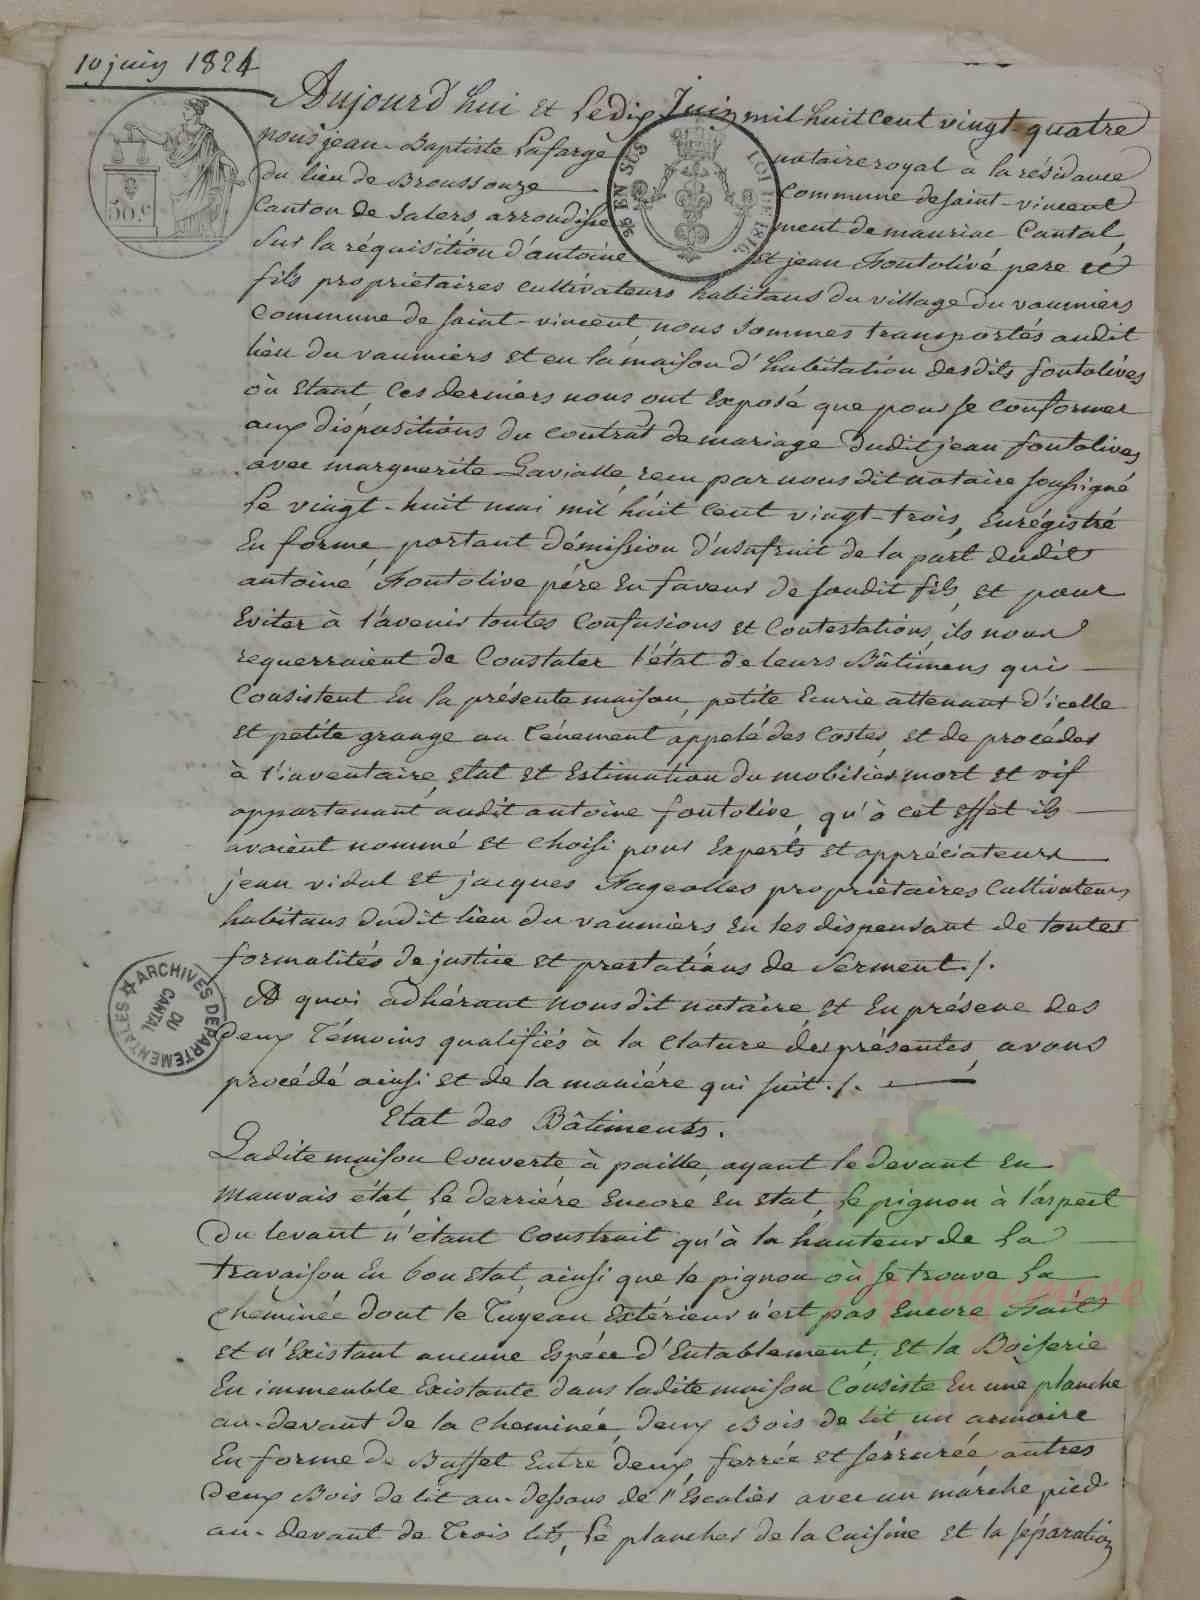 10 juin 1824
Aujourd'hui et le dix Juin mil huit cent vingt-quatre
nous jean-Baptiste Lafarge notaire royal à la résidance
du lieu de Broussouze commune de saint-vincent
Canton de Salers arrondissement de mauriac Cantal,
Sur la réquisition d'antoine et jean Fontolivé pere et
fils propriétaires cultivateurs habitans du village du vaumiers
Commune de saint-vincent nous sommes transportés audit
lieu du vaumiers et en la maison d'habitation desdits fontolives
où étant ces derniers nous ont exposé que pour se conformer
aux dispositions du contrat de mariage dudit jean fontolives
avec marguerite Lavialle, recu par nous dit notaire soussigné
le vingt-huit mai mil huit cent vingt-trois, enrégistré
en forme portant démission d'usufruit de la part dudit
antoine Fontolive pére en faveur de soudit fils, et pour
eviter à l'avenir toutes confusions et contestations, ils nous
requerraient de constater l'état de leurs Bâtimens qui
consistent en la présente maison, petite ecurie attenant d'icelle
et petite grange au ténement appelé des Costes, et de procéder
à l'inventaire, etat et estimation du mobilier mort et vif
appartenant audit antoine fontolive, qu'à cet effet ils
avaient nommé et choisi pour experts et appréciateurs
jean vidal et jacques Fageolles propriétaires cultivateurs
habitans dudit lieu du vaumiers en les dispensant de toutes
formalités de justice et prestations de serment ./.
A quoi adhérant nous dit notaire et en présence des
deux témoins qualifiés à la cloture des présentes, avons
procédé ainsi et de la maniére qui suit ./.
Etat des Bâtiments.
Ladite maison couverte à paille, ayant le devant en
mauvais état, le derriére encore en etat, le pignon à l'aspect
du levant n'étant construit qu'à la hauteur de la
travaison en bon etat, ainsi que le pignon où se trouve la
cheminée dont le Tuyeau extérieur n'est pas encore fait
et n'existant aucune espéce d'entablement; et la Boiserie
en immeuble existante dans ladite maison consiste en une planche
au-devant de la cheminée, deux Bois de lit un armoire
en forme de Buffet entre deux, ferrée et sérrurée, autres
deux Bois de lit au-dessous de l'escalier avec un marche pied
au-devant de trois lits, le plancher de la cuisine et la séparation
50.c
25 EN SUS
LOI DE 1816
ARCHIVES DEPARTEMENTALES
DU
CANTAL
Aprogemere